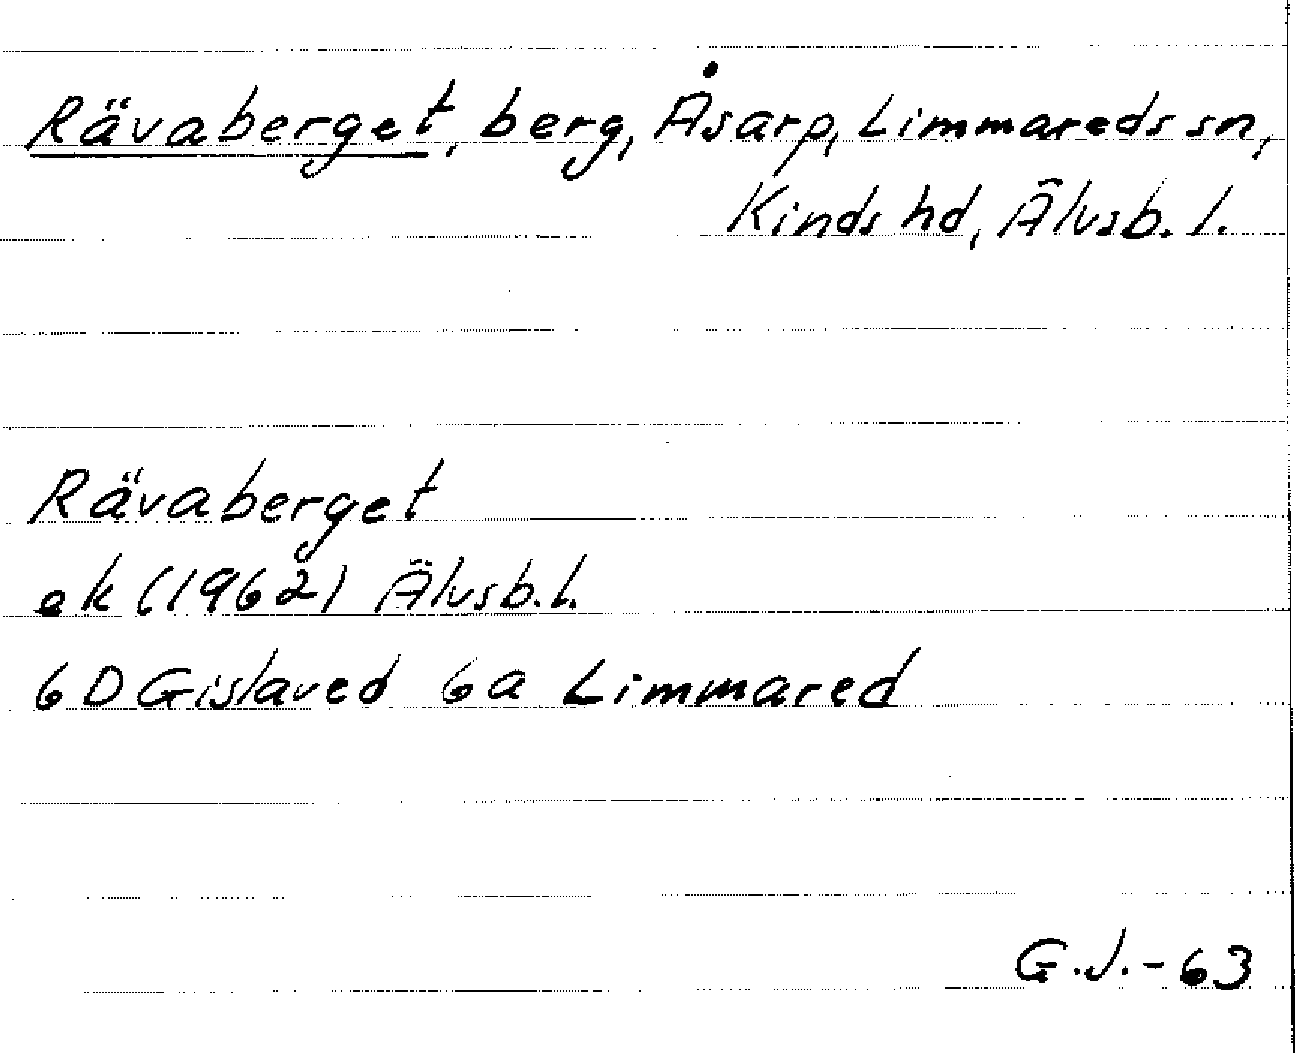 Rävaberget, berg, Åsarp, Limmareds sn,
Kinds hd, Älvsb. l.
Rävaberget
ek (1962) Älvsb. l.
6D Gislaved 6a Limmared
G.J.-63